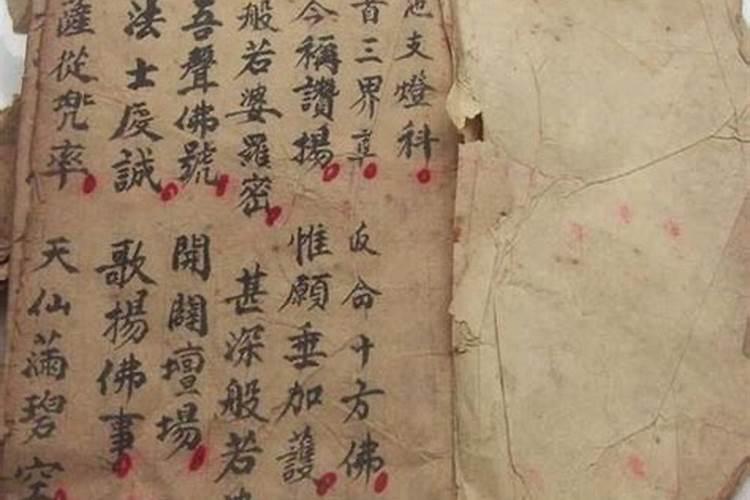 支燈科
首三界尊 皈命十方佛
今稱讚揚 惟願垂加護
般若婆羅密 甚深般若
吾聲佛號 開闢壇場
法士虔誠 歌揚佛事
薩從兜率 天仙滿碧空